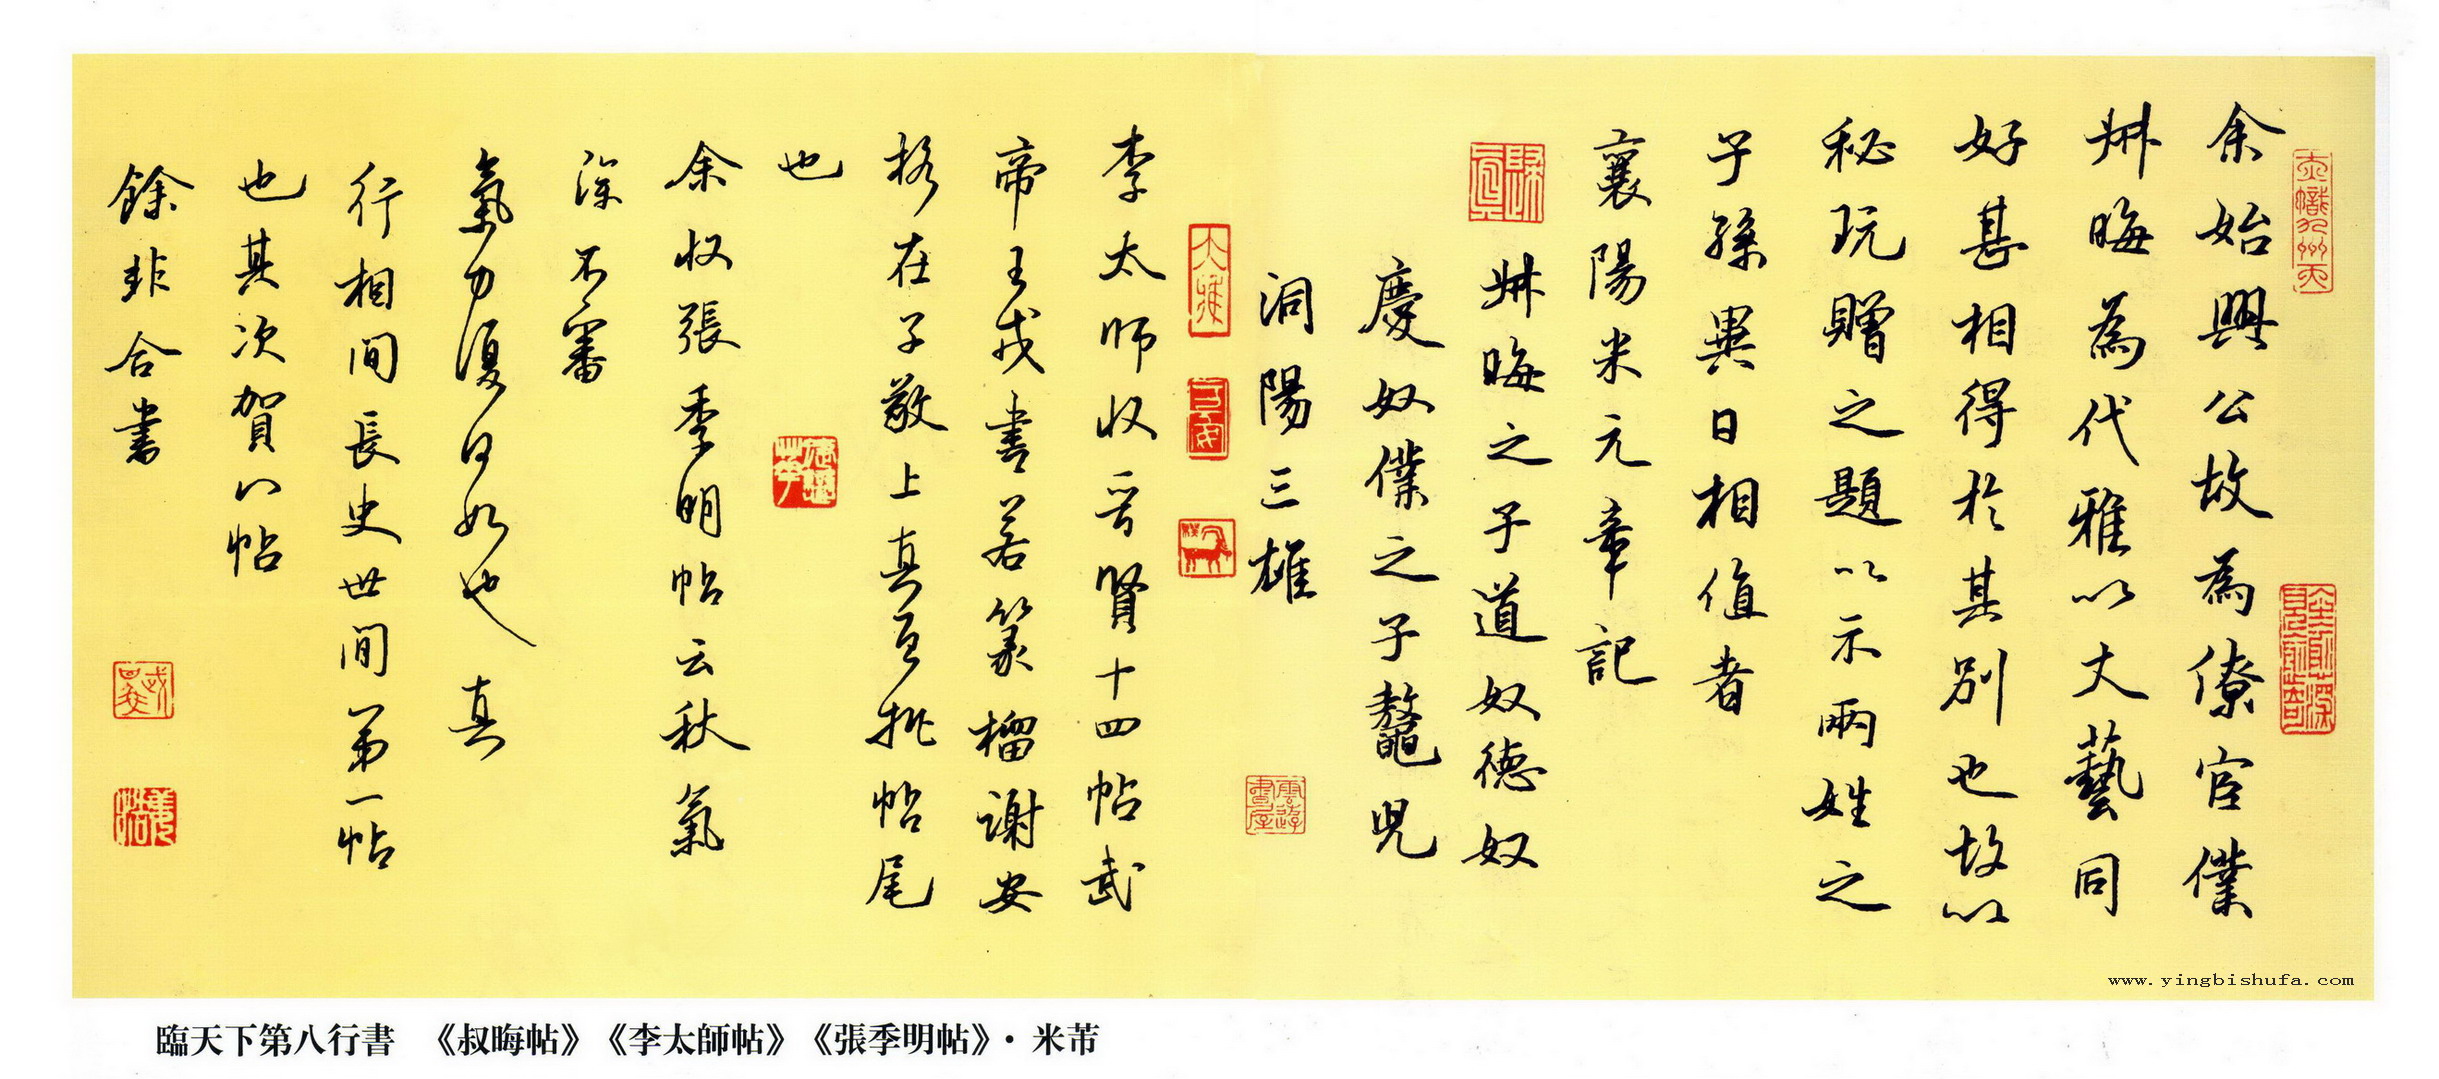 余始興公故為僚官僕
叔晦為代雅以文藝同
好甚相得於其別也故以
秘玩贈之題以示兩姓之
子孫異日相值者
襄陽米元章記
叔晦之子道奴德奴
慶奴僕之子鼇兒
洞陽三雄
李太師收晉賢十四帖武
帝王戎書若篆籀謝安
格在子敬上真宜批帖尾
也
余收張季明帖云秋氣
深不審
氣力復何如也真
行相間長史世間第一帖
也其次賀八帖
餘非合書
www.yingbishufa.com
臨天下第八行書 《叔晦帖》《李太師帖》《張季明帖》·米芾